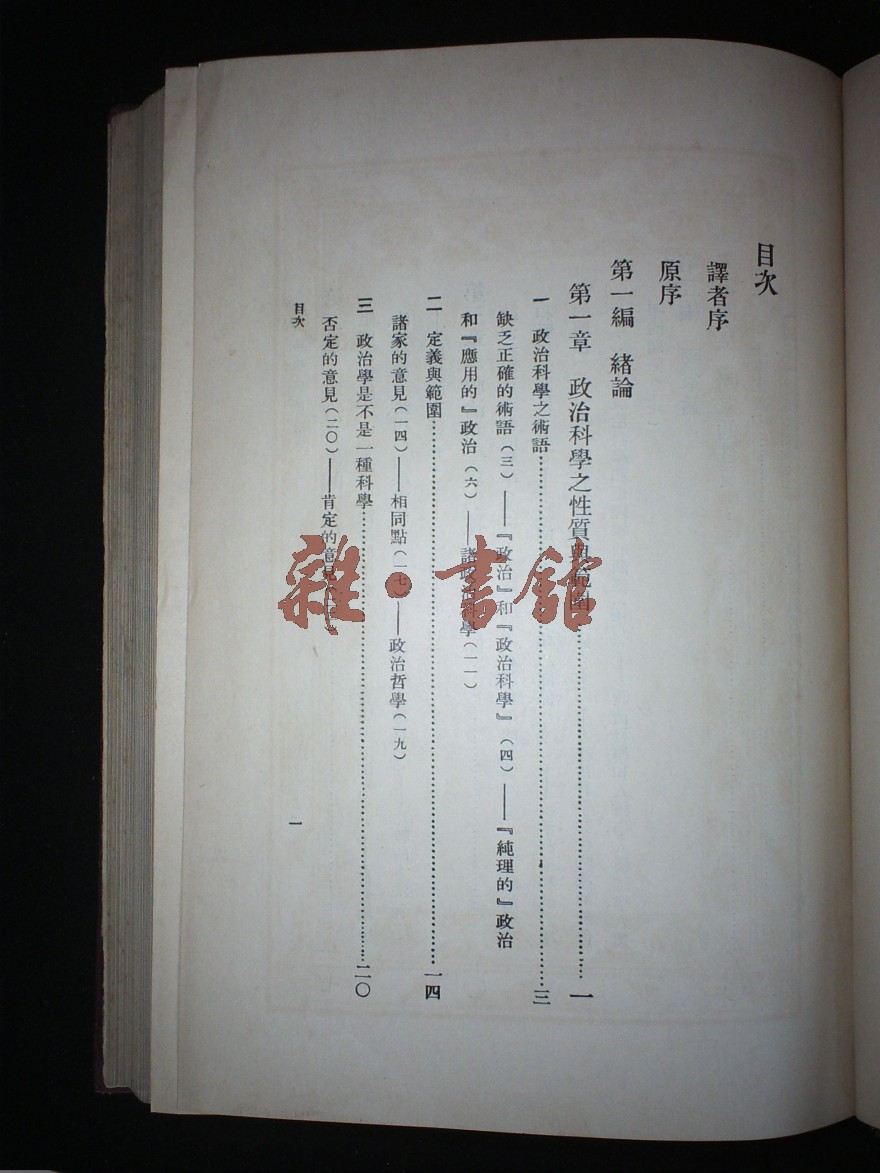 目次
譯者序
原序
第一編 緒論
第一章 政治科學之性質與範圍……一
一 政治科學之術語……三
缺乏正確的術語(三)——『政治』和『政治科學』(四)——『純理的』政治
和『應用的』政治(六)——諸政治科學(一一)
二 定義與範圍……一四
諸家的意見(一四)——相同點(一七)——政治哲學(一九)
三 政治學是不是一種科學……二〇
否定的意見(二〇)——肯定的意見
目次
一
雜·書館